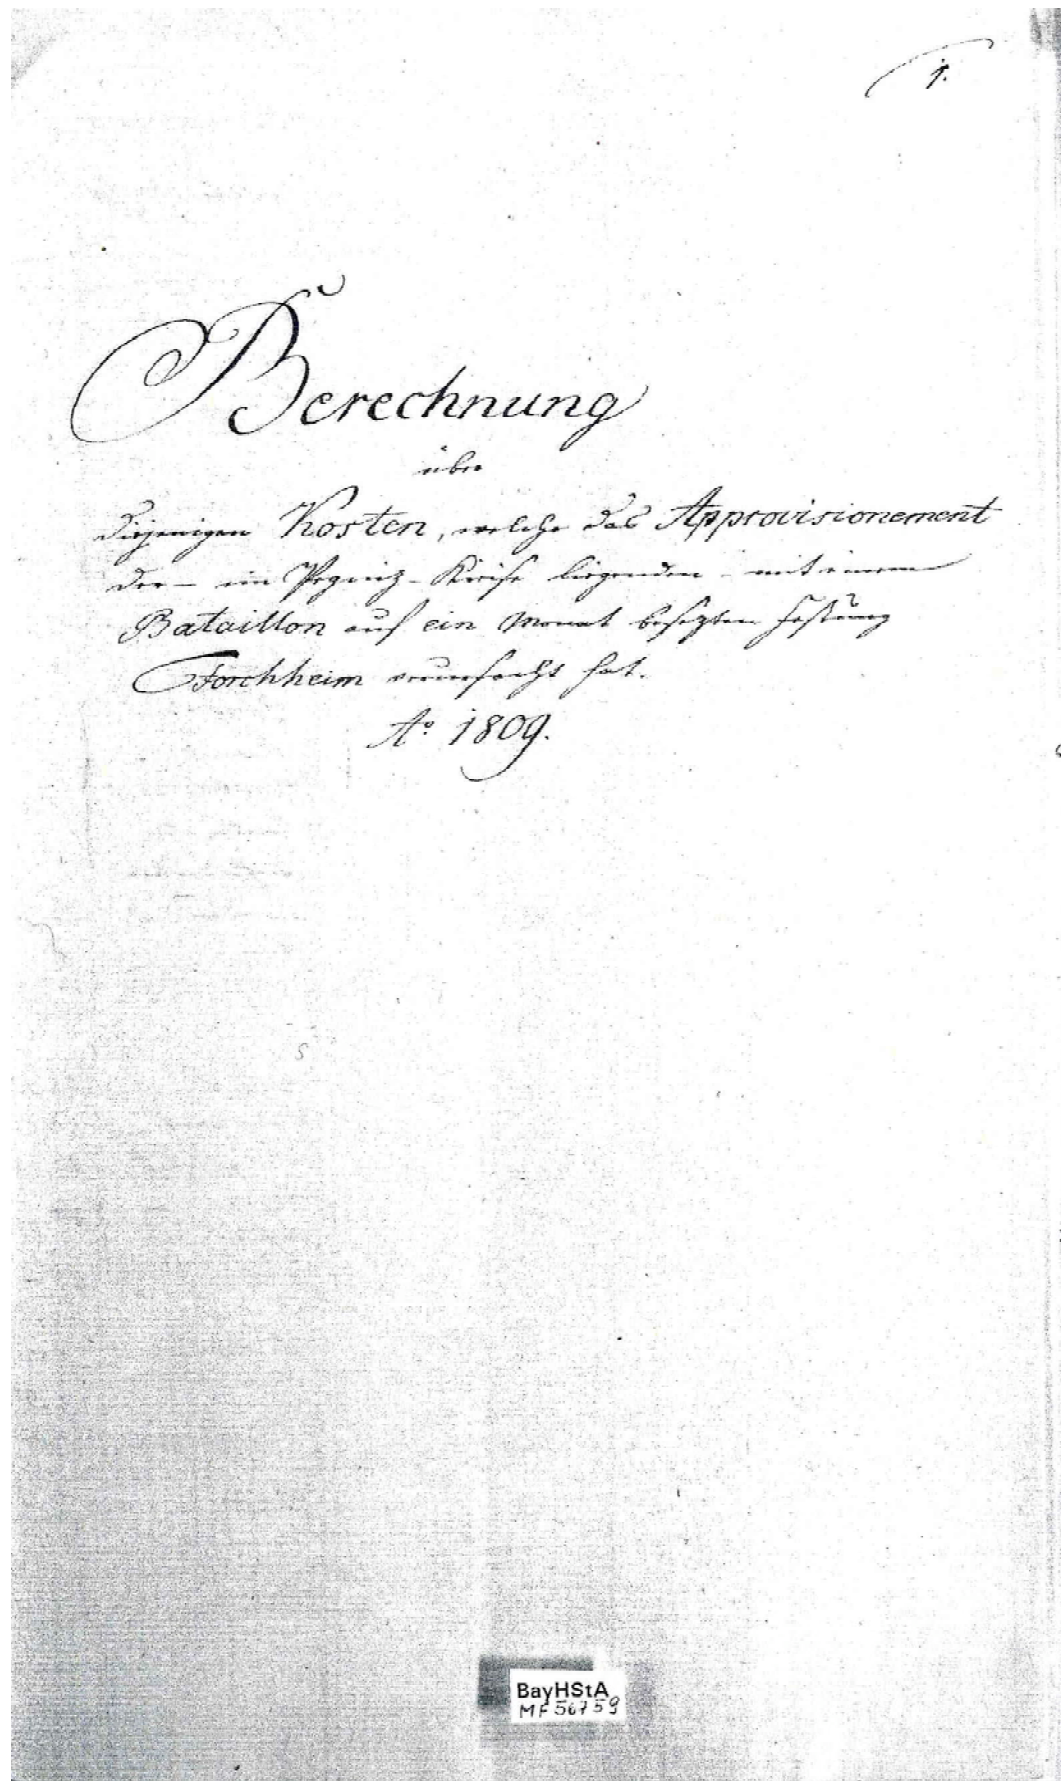 1.
Berechnung
über
diejenigen Kosten, welche das Approvisionement
der – im Pegniz-Kreise liegenden – mit einem
Bataillon auf ein Monat besezten Festung
Forchheim verursacht hat.
Aº 1809.
BayHStA
MF 56759